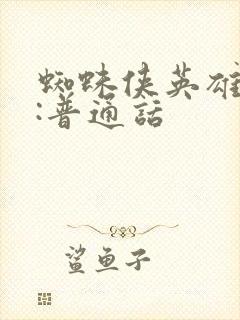 蜘蛛侠英雄
:普通話
鲨鱼子